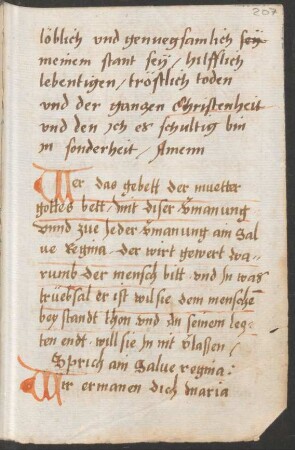 207
löblich vnd genuegsamlich sey
meinem stant sey / hilfflich
lebentigen / tröstlich toden
vnd der gangen Christenheit
vnd den ich es schultig bin
in sonderheit / Amenn
Wer das gebett der muetter
gottes bett / mit diser v̈manung
vnnd zue Jeder v̈manung ain Sal
ue Regina. der wirt gewert wa=
rumb der mensch bitt. vnd In was
trüebsal er ist wil sie dem menschē
bey standt thon vnd In seinem leg=
ten endt. will sie In nit v̈lassen /
Sprich ain Salue regina:
Wir ermanen dich maria